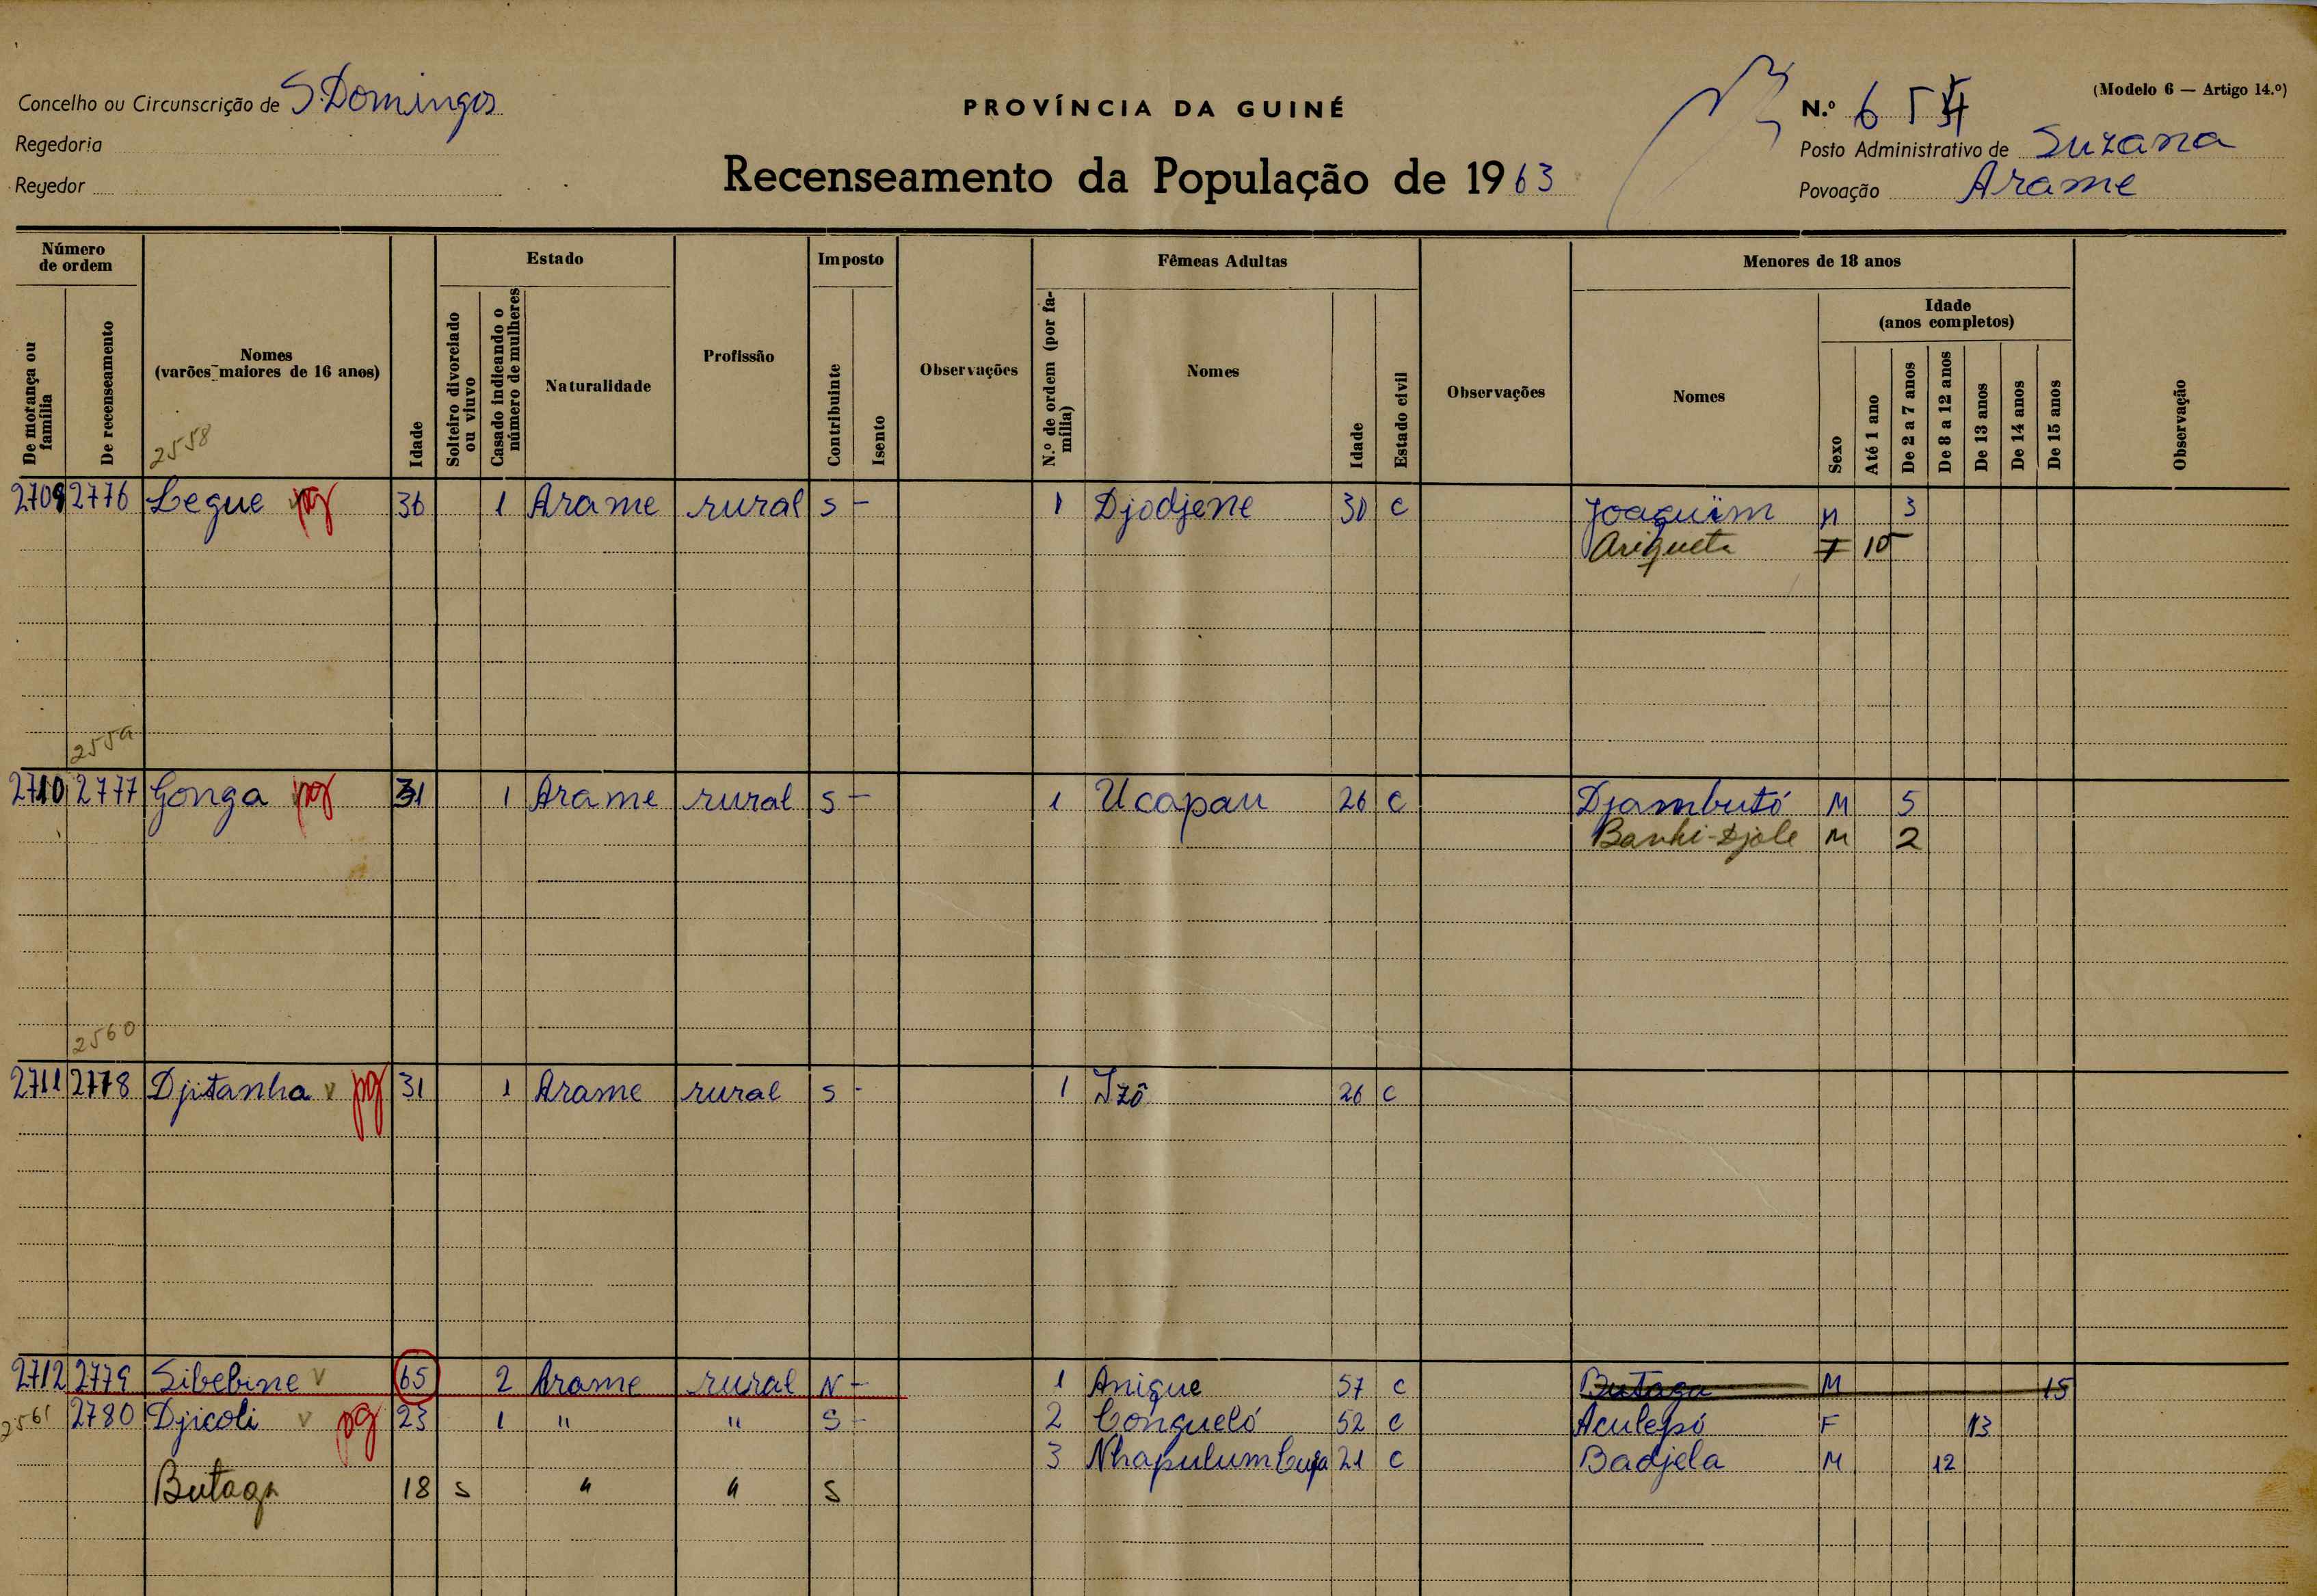 Concelho ou Circunscrição de S. Domingos
Regedoria
Regedor
PROVÍNCIA DA GUINÉ
Recenseamento da População de 1963
(Modelo 6 — Artigo 14.º)
N.º 65
Posto Administrativo de Suzana
Povoação Arame
Número de ordem
De morança ou família
De recenseamento
Nomes (varões maiores de 16 anos)
Idade
Estado
Solteiro divorciado ou viuvo
Casado indicando o número de mulheres
Naturalidade
Profissão
Imposto
Contribuinte
Isento
Observações
Fêmeas Adultas
N.º de ordem (por família)
Nomes
Idade
Estado civil
Observações
Menores de 18 anos
Nomes
Sexo
Idade (anos completos)
Até 1 ano
De 2 a 7 anos
De 8 a 12 anos
De 13 anos
De 14 anos
De 15 anos
Observação
2558
2709 2776 Legue pg 36 1 Arame rural S - 1 Djodjene 30 C Joaquim M 3
Ariqueta F 10
2559
2710 2777 Gonga pg 31 1 Arame rural S - 1 Ucapau 26 C Djambutó M 5
Banhi-Djole M 2
2560
2711 2778 Djitanha v pg 31 1 Arame rural S - 1 Izô 26 C
2712 2779 Sibebine v 65 2 Arame rural N - 1 Anique 57 C Butaga M 15
2561 2780 Djicoli v pg 23 1 " " S - 2 Conqueló 52 C Aculepó F 13
3 21 C Badjela M 12
Butaga 18 S " " S